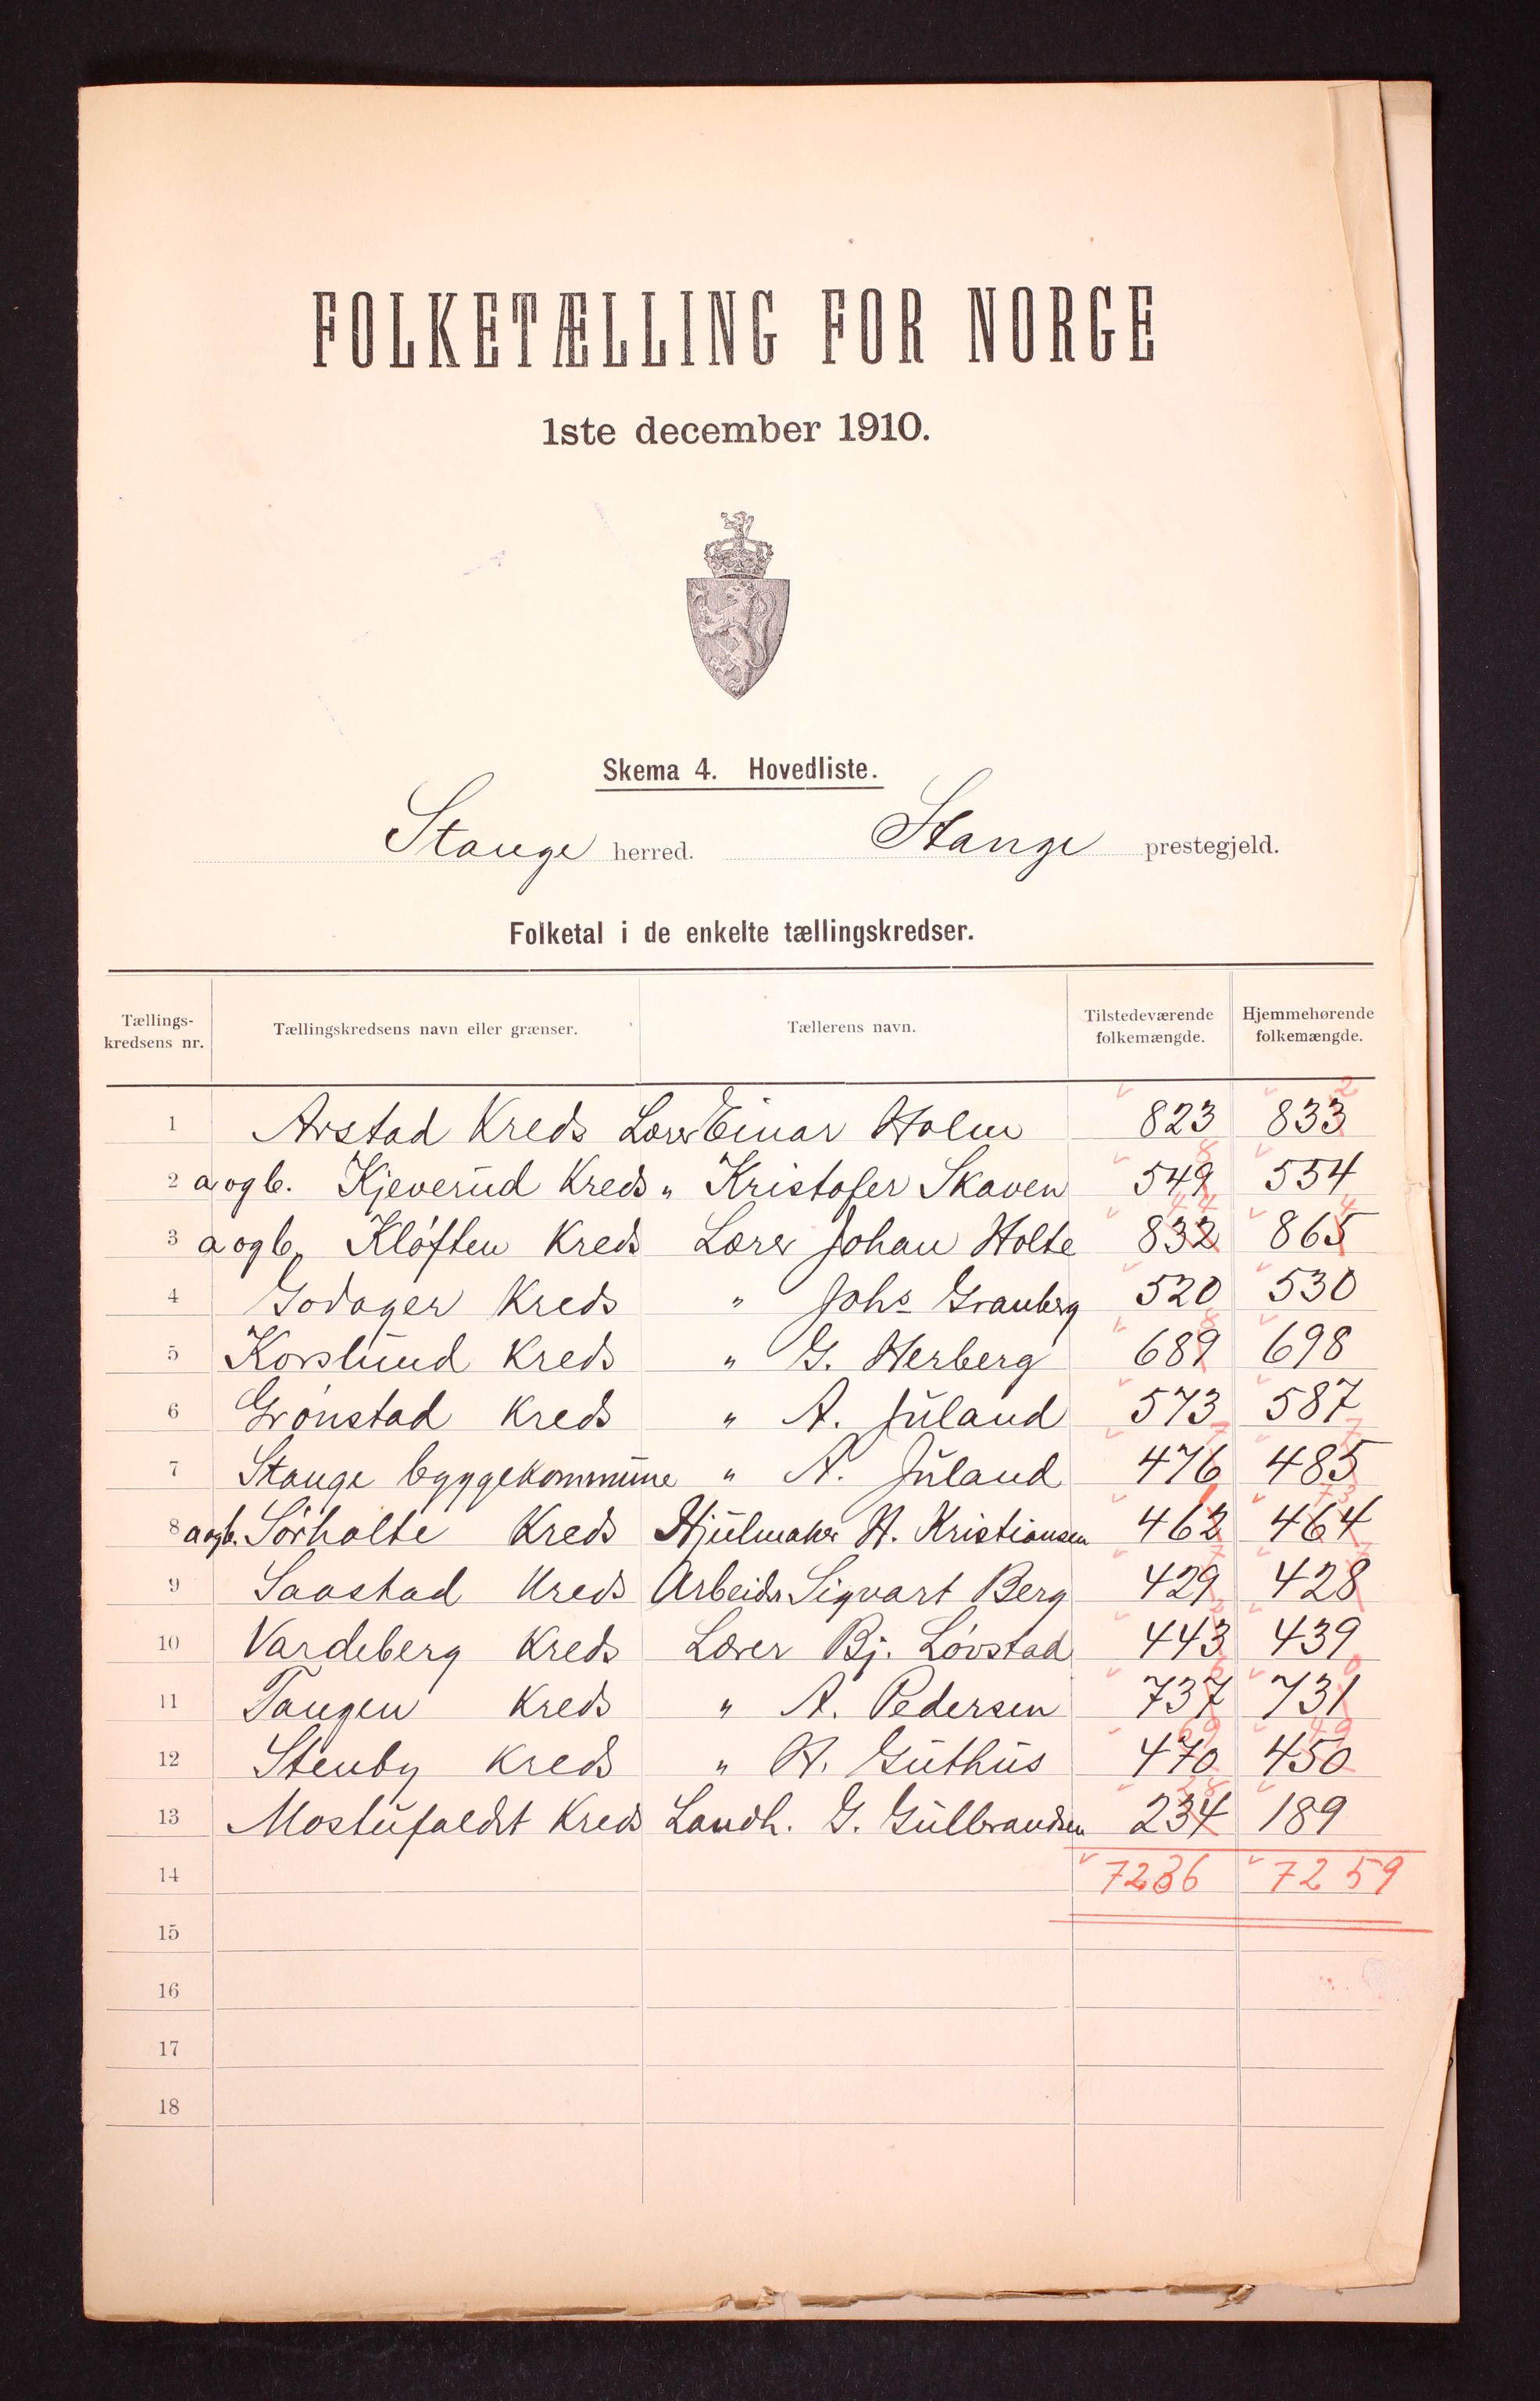 FOLKETÆLLING FOR NORGE
1ste december 1910.
Skema 4. Hovedliste.
Stange herred. Stange prestegjeld.
Folketal i de enkelte tællingskredser.
Tællings-kredsens nr. Tællingskredsens navn eller grænser. Tællerens navn. Tilstedeværende folkemængde. Hjemmehørende folkemængde.
1 Arstad Kreds Lærer Einar Holm 823 833 2
2 a og b. Kjeverud Kreds " Kristofer Skaven 549 8 554
3 a og b. Kløften Kreds Lærer Johan Holte 832 44 865 4
4 Godager Kreds " Johs Granberg 520 530
5 Korslund Kreds " G. Herberg 689 8 698
6 Grønstad Kreds " A. Juland 573 587
7 Stange byggekommune " A. Juland 476 7 485 7
8 a og b. Sørholte Kreds Hjulmaker H. Kristiansen 462 1 464 73
9 Saastad Kreds Arbeider Sigvart Berg 429 7 428 7
10 Vardeberg Kreds Lærer Bj. Løvstad 443 2 439
11 Tangen Kreds " A. Pedersen 737 6 731 0
12 Stenby Kreds " H. Guthus 470 69 450 49
13 Mostufaldt Kreds Landh. G. Gulbrandsen 234 28 189
14 7236 7259
15
16
17
18